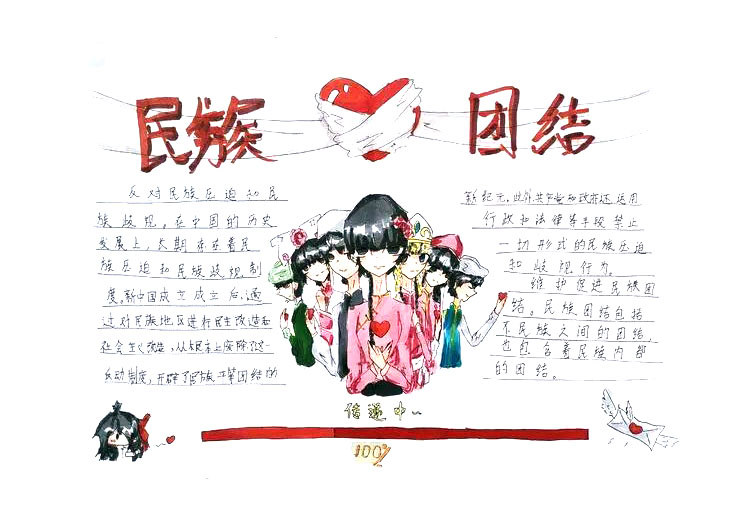 民族 团结
反对民族压迫和民
族歧视。在中国的历史
发展上，长期存在着民
族压迫和民族歧视制
度。新中国成立成立后，通
过对民族地区进行民主改造和
社会主义改造，从根本上废除了这一
反动制度，开辟了民族平等团结的
新纪元。此外共产党和政府还运用
行政和法律等手段禁止
一切形式的民族压迫
和歧视行为。
维护促进民族团
结。民族团结包括
不民族之间的团结，
也包含着民族内部
的团结。
传递中~
100%